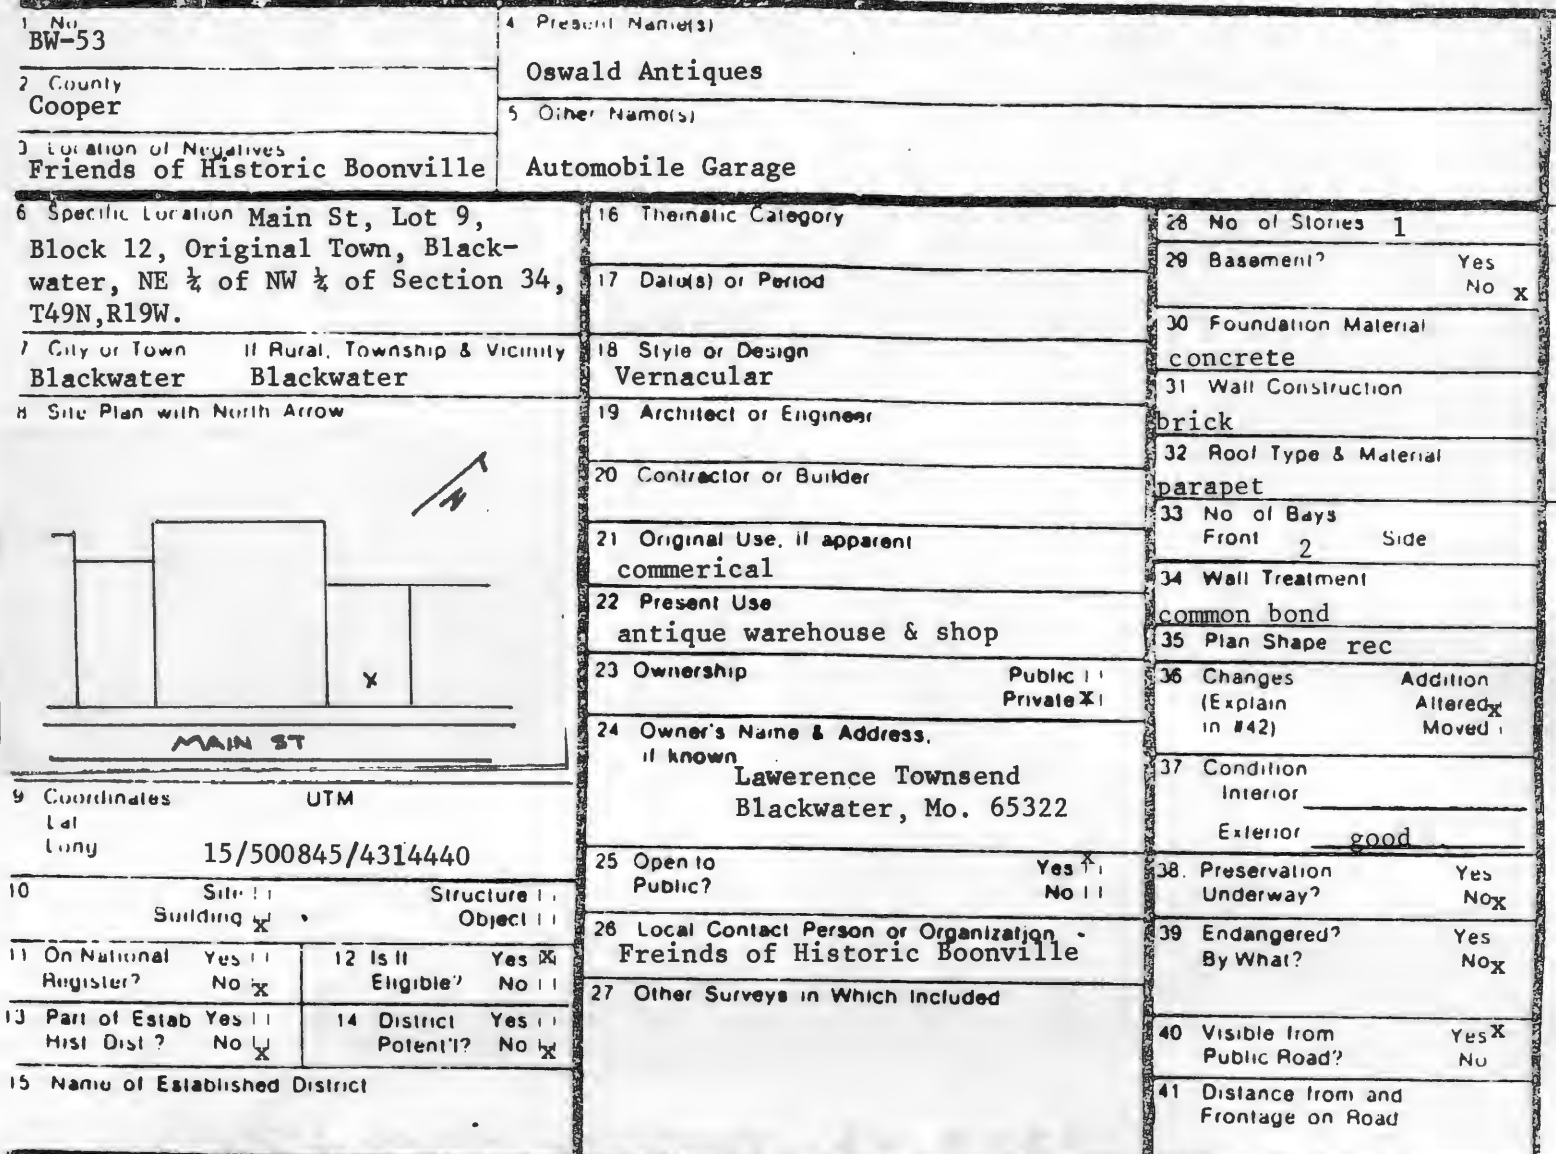 1 No.
BW-53
4 Present Name(s)
Oswald Antiques
2 County
Cooper
5 Other Name(s)
Automobile Garage
3 Location of Negatives
Friends of Historic Boonville
6 Specific Location Main St, Lot 9,
Block 12, Original Town, Black-
water, NE ¼ of NW ¼ of Section 34,
T49N,R19W.
7 City or Town If Rural, Township & Vicinity
Blackwater Blackwater
8 Site Plan with North Arrow
N
x
MAIN ST
9 Coordinates UTM
Lat
Long 15/500845/4314440
10 Site Structure
Building x Object
11 On National Yes
Register? No x
12 Is It Yes x
Eligible? No
13 Part of Estab Yes
Hist Dist? No x
14 District Yes
Potent'l? No x
15 Name of Established District
16 Thematic Category
17 Date(s) or Period
18 Style or Design
Vernacular
19 Architect or Engineer
20 Contractor or Builder
21 Original Use, if apparent
commerical
22 Present Use
antique warehouse & shop
23 Ownership Public
Private x
24 Owner's Name & Address,
if known
Lawerence Townsend
Blackwater, Mo. 65322
25 Open to Yes x
Public? No
26 Local Contact Person or Organization
Freinds of Historic Boonville
27 Other Surveys in Which Included
28 No of Stories 1
29 Basement? Yes
No x
30 Foundation Material
concrete
31 Wall Construction
brick
32 Roof Type & Material
parapet
33 No of Bays
Front 2 Side
34 Wall Treatment
common bond
35 Plan Shape rec
36 Changes Addition
(Explain Altered x
in #42) Moved
37 Condition
Interior
Exterior good
38. Preservation Yes
Underway? No x
39 Endangered? Yes
By What? No x
40 Visible from Yes x
Public Road? No
41 Distance from and
Frontage on Road